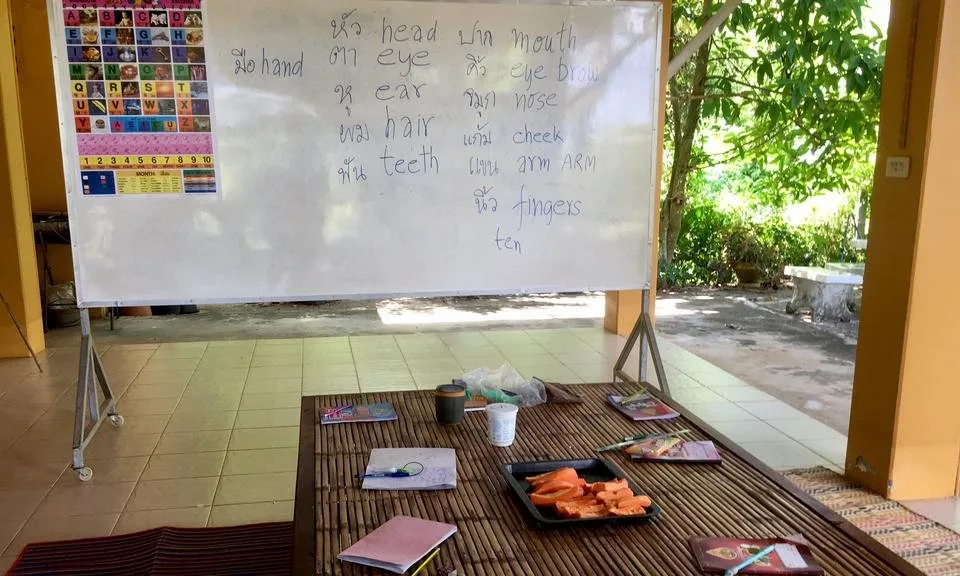 A B C D
E F G H
I J K L
M N O P
Q R S T
U V W X
Y Z A E I O U
1 2 3 4 5 6 7 8 9 10
MONTH
มือ hand
หัว head
ตา eye
หู ear
ผม hair
ฟัน teeth
ปาก mouth
คิ้ว eye brow
จมูก nose
แก้ม cheek
แขน arm ARM
นิ้ว fingers
ten